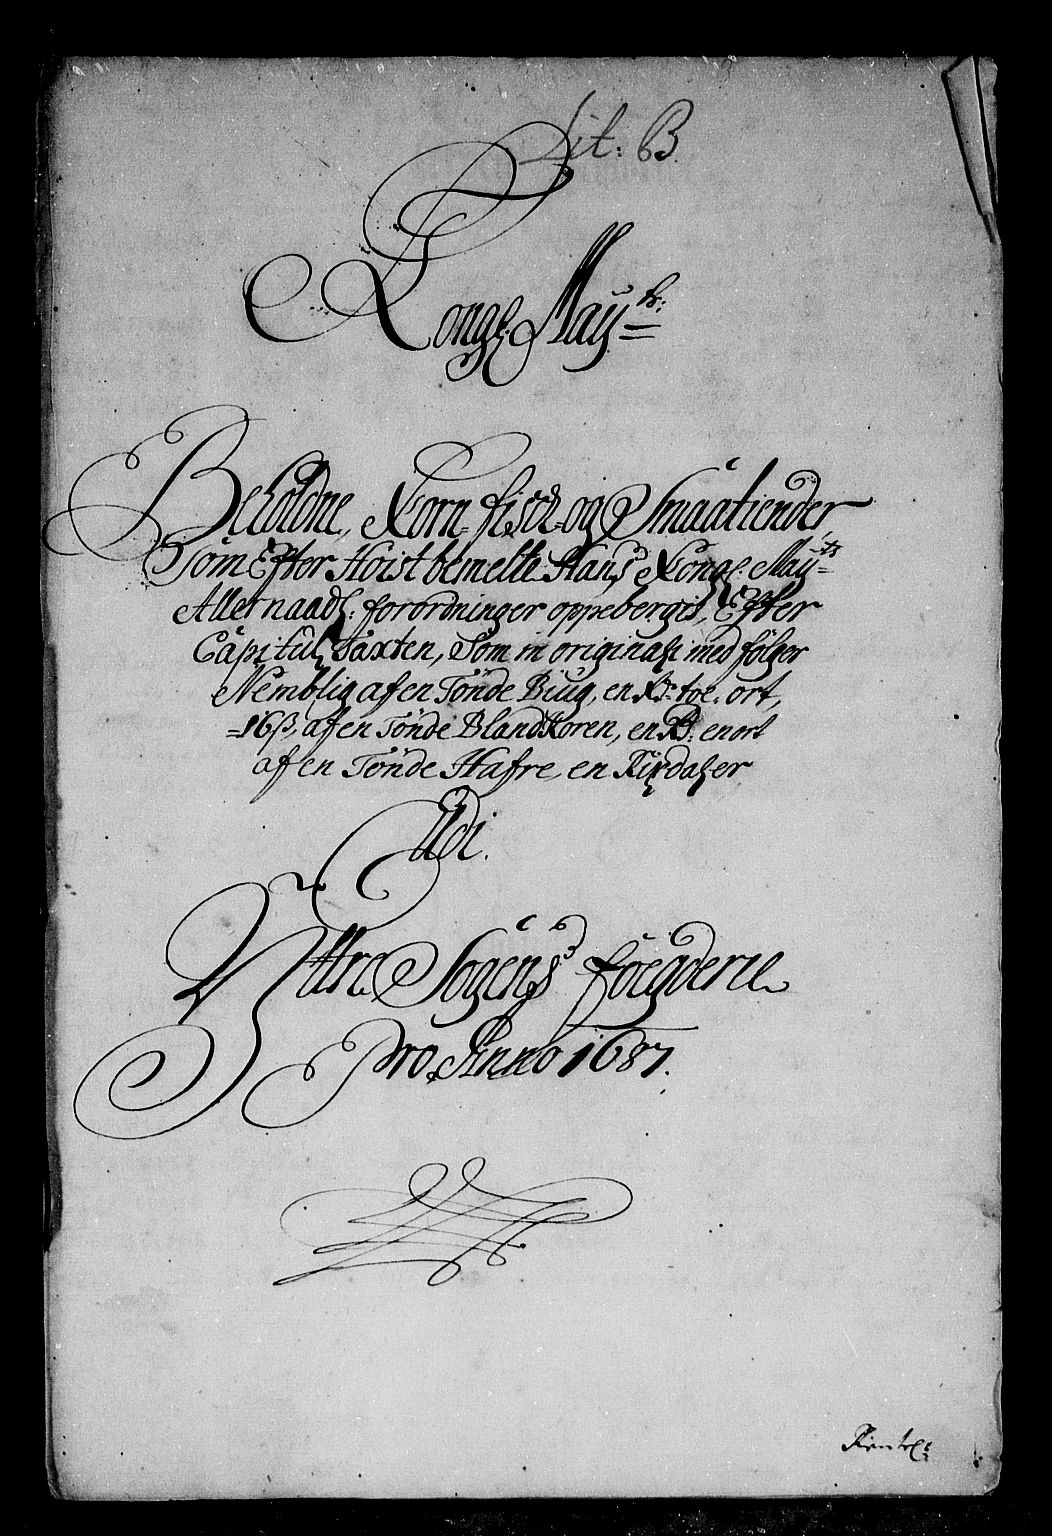 Lit: B.
Kongl. May.tz:
Beholdne, Korn- fisch- og Smaatiender
Som Efter Høist bemelte Hans Kongl. May.tz
Allernaadl: forordninger oppebergis, Efter
Capituls Taxten, Som in originali med følger
Nemblig af en Tønde Biug, en Rd: toe. ort,
16ß, af en Tønde Bland Koren, en Rd: en ort
af en Tønde Hafre, en Rixdaler
Udi.
Yttre Sogens foegderie
Pro Anno 1687.